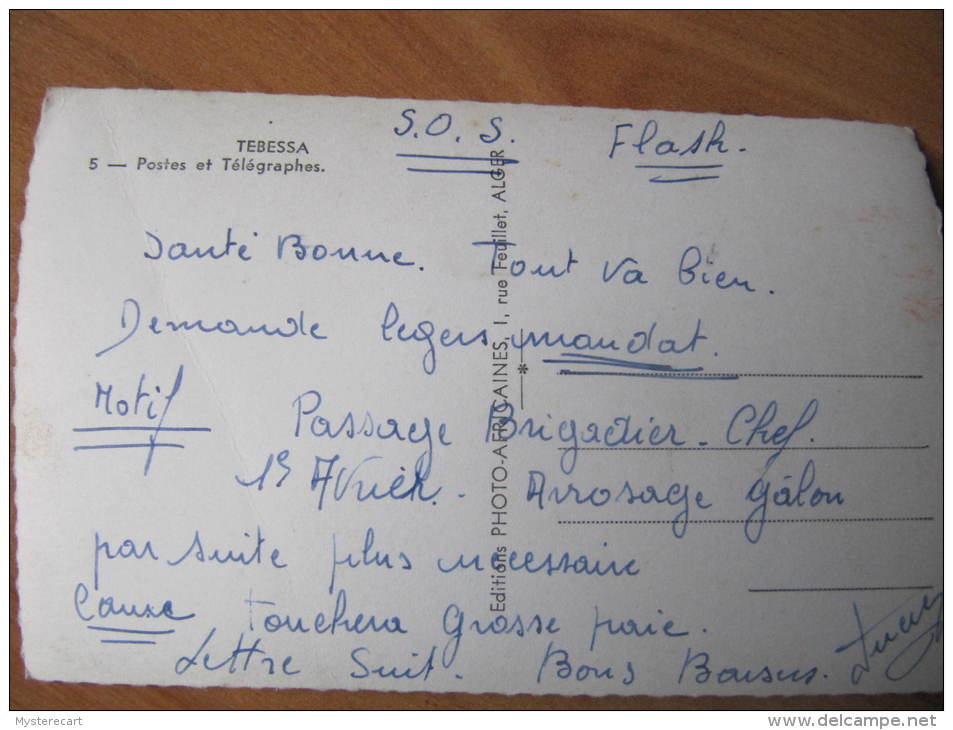 S.O.S. Flash.
TEBESSA
5 — Postes et Télégraphes.
Santé Bonne. Tout va bien.
Demande legers mandat.
Motif Passage Brigadier-Chef.
1er Avril. Arrosage gâlon
par suite plus necessaire
Cause Touchera Grosse paie.
Lettre Suit. Bons Baisers.
Editions PHOTO-AFRICAINES, 1, rue Feuillet, ALGER
*
Mysterecart
www.delcampe.net